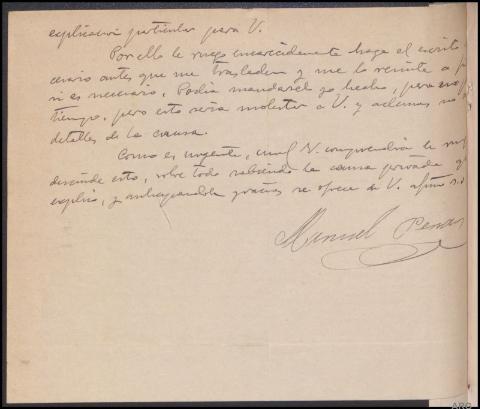 explicación particular para V.
Por ello le ruego encarecidamente haga el escrito
antes que me trasladen y me lo remita a
si es necesario. Podía mandarsel yo hecho, para
tiempo, pero esto sería molestar a V. y además no
detalles de la causa.
Como es urgente, cual V. comprenderá le
esto, sobre todo sabiendo la causa privada
explico, y anticipandole gracias se ofrece de V. afmo s.s.
Manuel
ARC